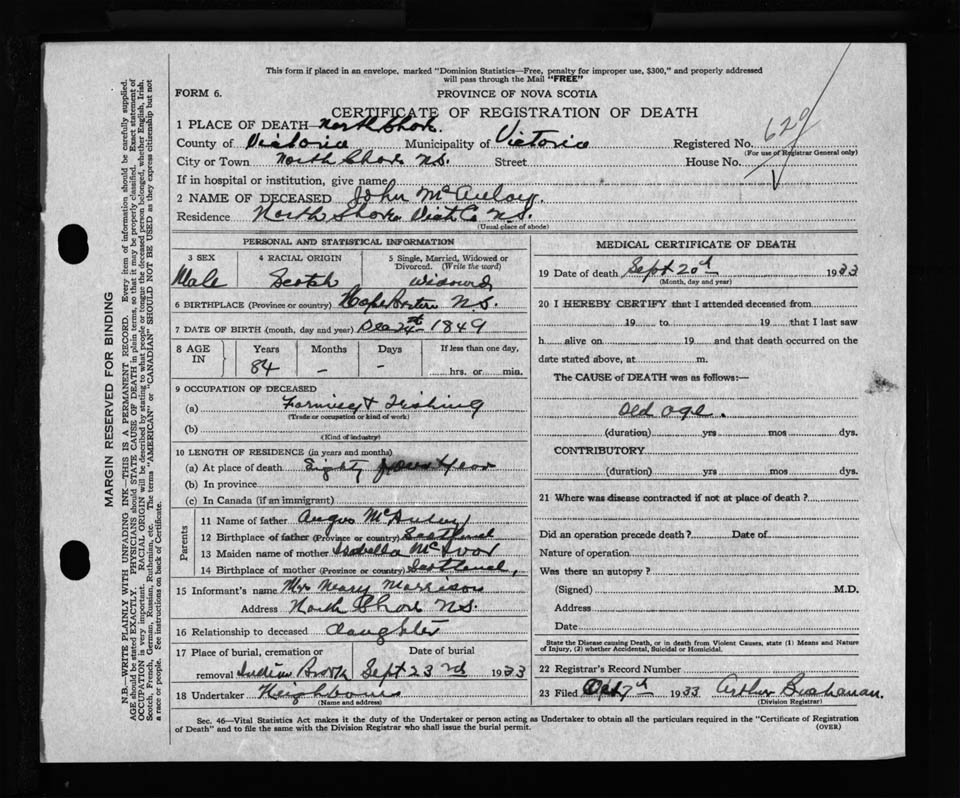 This form if placed in an envelope, marked "Dominion Statistics—Free, penalty for improper use, $300," and properly addressed
will pass through the Mail "FREE"
FORM 6. PROVINCE OF NOVA SCOTIA
CERTIFICATE OF REGISTRATION OF DEATH
1 PLACE OF DEATH North Shore.
County of Victoria Municipality of Victoria Registered No. 629
(For use of Registrar General only)
City or Town North Shore N.S. Street House No.
If in hospital or institution, give name
2 NAME OF DECEASED John McAulay
Residence North Shore Vict Co N.S.
(Usual place of abode)
PERSONAL AND STATISTICAL INFORMATION
3 SEX 4 RACIAL ORIGIN 5 Single, Married, Widowed or
Divorced. (Write the word)
Male Scotch widowed
6 BIRTHPLACE (Province or country) N.S.
7 DATE OF BIRTH (month, day and year) Dec 24st 1849
8 AGE IN Years Months Days If less than one day,
84 – – hrs. or min.
9 OCCUPATION OF DECEASED
(a) Farming & Fishing
(Trade or occupation or kind of work)
(b)
(Kind of industry)
10 LENGTH OF RESIDENCE (in years and months)
(a) At place of death Eighty four
(b) In province
(c) In Canada (if an immigrant)
Parents
11 Name of father Angus McAulay
12 Birthplace of father (Province or country) Scotland
13 Maiden name of mother Isabella McIvor
14 Birthplace of mother (Province or country) Scotland,
15 Informant's name Mrs Morrison
Address North Shore N.S.
16 Relationship to deceased daughter
17 Place of burial, cremation or Date of burial
removal Indian Brook Sept 23rd 1933
18 Undertaker Neighbours
(Name and address)
MEDICAL CERTIFICATE OF DEATH
19 Date of death Sept 20th 1933
(Month, day and year)
20 I HEREBY CERTIFY that I attended deceased from
19 to 19 that I last saw
h alive on 19 and that death occurred on the
date stated above, at m.
The CAUSE of DEATH was as follows:—
Old age.
(duration) yrs mos dys.
CONTRIBUTORY
(duration) yrs mos dys.
21 Where was disease contracted if not at place of death?
Did an operation precede death? Date of
Nature of operation
Was there an autopsy?
(Signed) M.D.
Address
Date
State the Disease causing Death, or in death from Violent Causes, state (1) Means and Nature
of Injury, (2) whether Accidental, Suicidal or Homicidal.
22 Registrar's Record Number
23 Filed Oct 7th 1933 Arthur Buchanan.
(Division Registrar)
Sec. 46—Vital Statistics Act makes it the duty of the Undertaker or person acting as Undertaker to obtain all the particulars required in the "Certificate of Registration
of Death" and to file the same with the Division Registrar who shall issue the burial permit. (OVER)
MARGIN RESERVED FOR BINDING
N.B.—WRITE PLAINLY WITH UNFADING INK—THIS IS A PERMANENT RECORD. Every item of information should be carefully supplied.
AGE should be stated EXACTLY. PHYSICIANS should STATE CAUSE OF DEATH in plain terms, so that it may be properly classified. Exact statement of
OCCUPATION is very important. RACIAL ORIGIN will be described by stating to what people or tongue the deceased person belonged, whether English, Irish,
Scotch, French, German, Russian, Ruthenian, etc. The terms "AMERICAN" or "CANADIAN" SHOULD NOT BE USED as they express citizenship but not
a race or people. See instructions on back of Certificate.